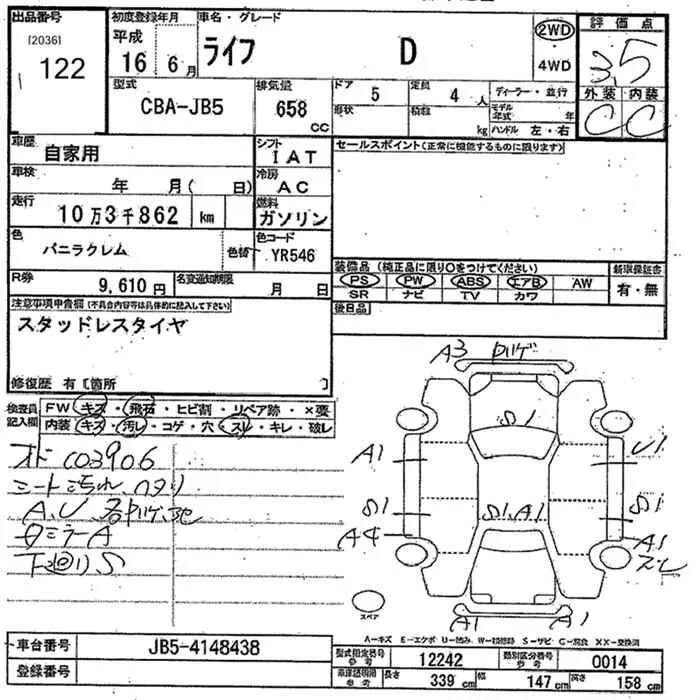 出品番号 初度登録年月 車名・グレード 2WD 評価点
[2036]
122
平成 16 6月 ライフ D 4WD 3.5
型式 CBA-JB5 排気量 658 CC ドア 5 定員 4人 ディーラー・並行 外装 内装
形状 積載 kg モデル年式 年 ハンドル 左・右 C C
車歴 自家用 シフト IAT セールスポイント(正常に機能するものに限ります)
車検 年 月( 日) 冷房 AC
走行 10万3千862 km 燃料 ガソリン
色 バニラクレム 色替 色コード YR546
R券 9,610円 名変通知期限 月 日
装備品(純正品に限り○をつけてください) 新車保証書
PS PW ABS エアB AW 有・無
SR ナビ TV カワ
後日品
注意事項申告欄(不具合内容等は具体的に記入して下さい)
スタッドレスタイヤ
修復歴 有〔箇所 〕
検査員記入欄 FW キズ・飛石・ヒビ割・リペア跡・×要
内装 キズ・汚レ・コゲ・穴・スレ・キレ・破レ
オド 003906
シート
A、U
ミラーA
下回りS
A3
S1
A1 U1
S1 S1,A1 S1
A4 A1
スレ
A1 A1
スペア
A-キズ E-エクボ U-凹み W-補修跡 S-サビ C-腐食 XX-交換済
車台番号 JB5-4148438
登録番号
型式指定番号 参考 12242 類別区分番号 参考 0014
車検証明用 参考 長さ 339cm 幅 147cm 高さ 158cm